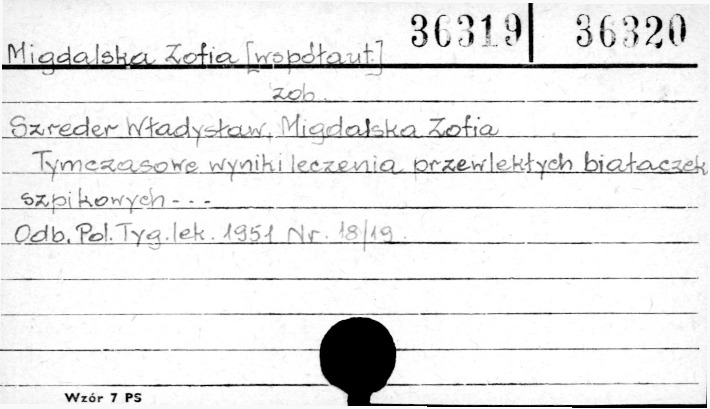 36319 36320
Migdalska Zofia [współaut.]
zob.
Szreder Władysław, Migdalska Zofia
Tymczasowe wyniki leczenia przewlekłych białaczek
szpikowych - - -
Odb. Pol. Tyg. lek. 1951 Nr. 18/19.
Wzór 7 PS